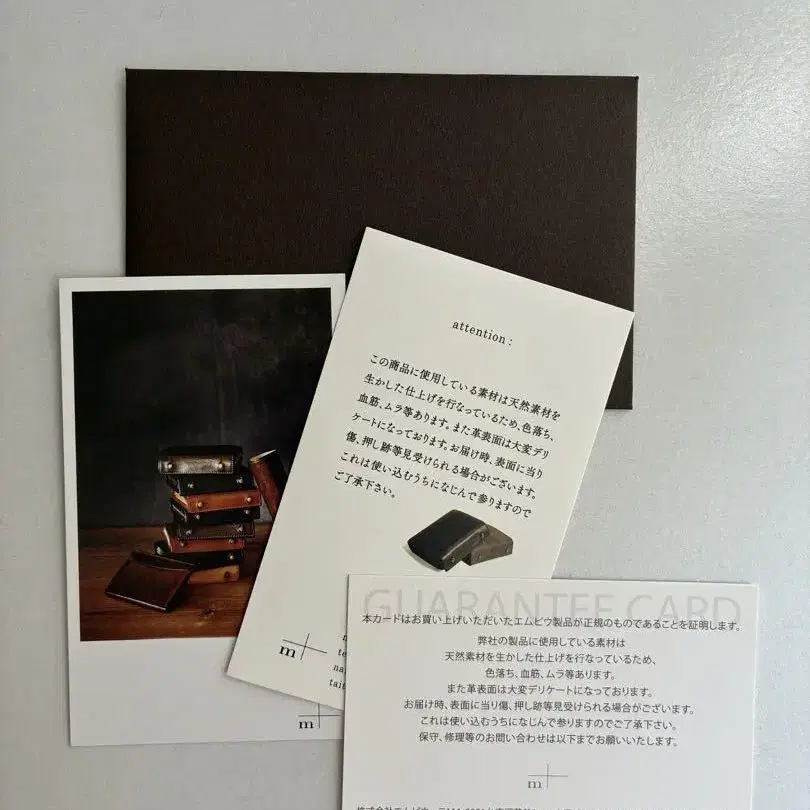 attention :
この商品に使用している素材は天然素材を
生かした仕上げを行なっているため、色落ち、
血筋、ムラ等あります。また革表面は大変デリ
ケートになっております。お届け時、表面に当り
傷、押し跡等見受けられる場合がございます。
これは使い込むうちになじんで参りますので
ご了承下さい。
m
m
GUARANTEE CARD
本カードはお買い上げいただいたエムピウ製品が正規のものであることを証明します。
弊社の製品に使用している素材は
天然素材を生かした仕上げを行なっているため、
色落ち、血筋、ムラ等あります。
また革表面は大変デリケートになっております。
お届け時、表面に当り傷、押し跡等見受けられる場合がございます。
これは使い込むうちになじんで参りますのでご了承下さい。
保守、修理等のお問い合わせは以下までお願いいたします。
m